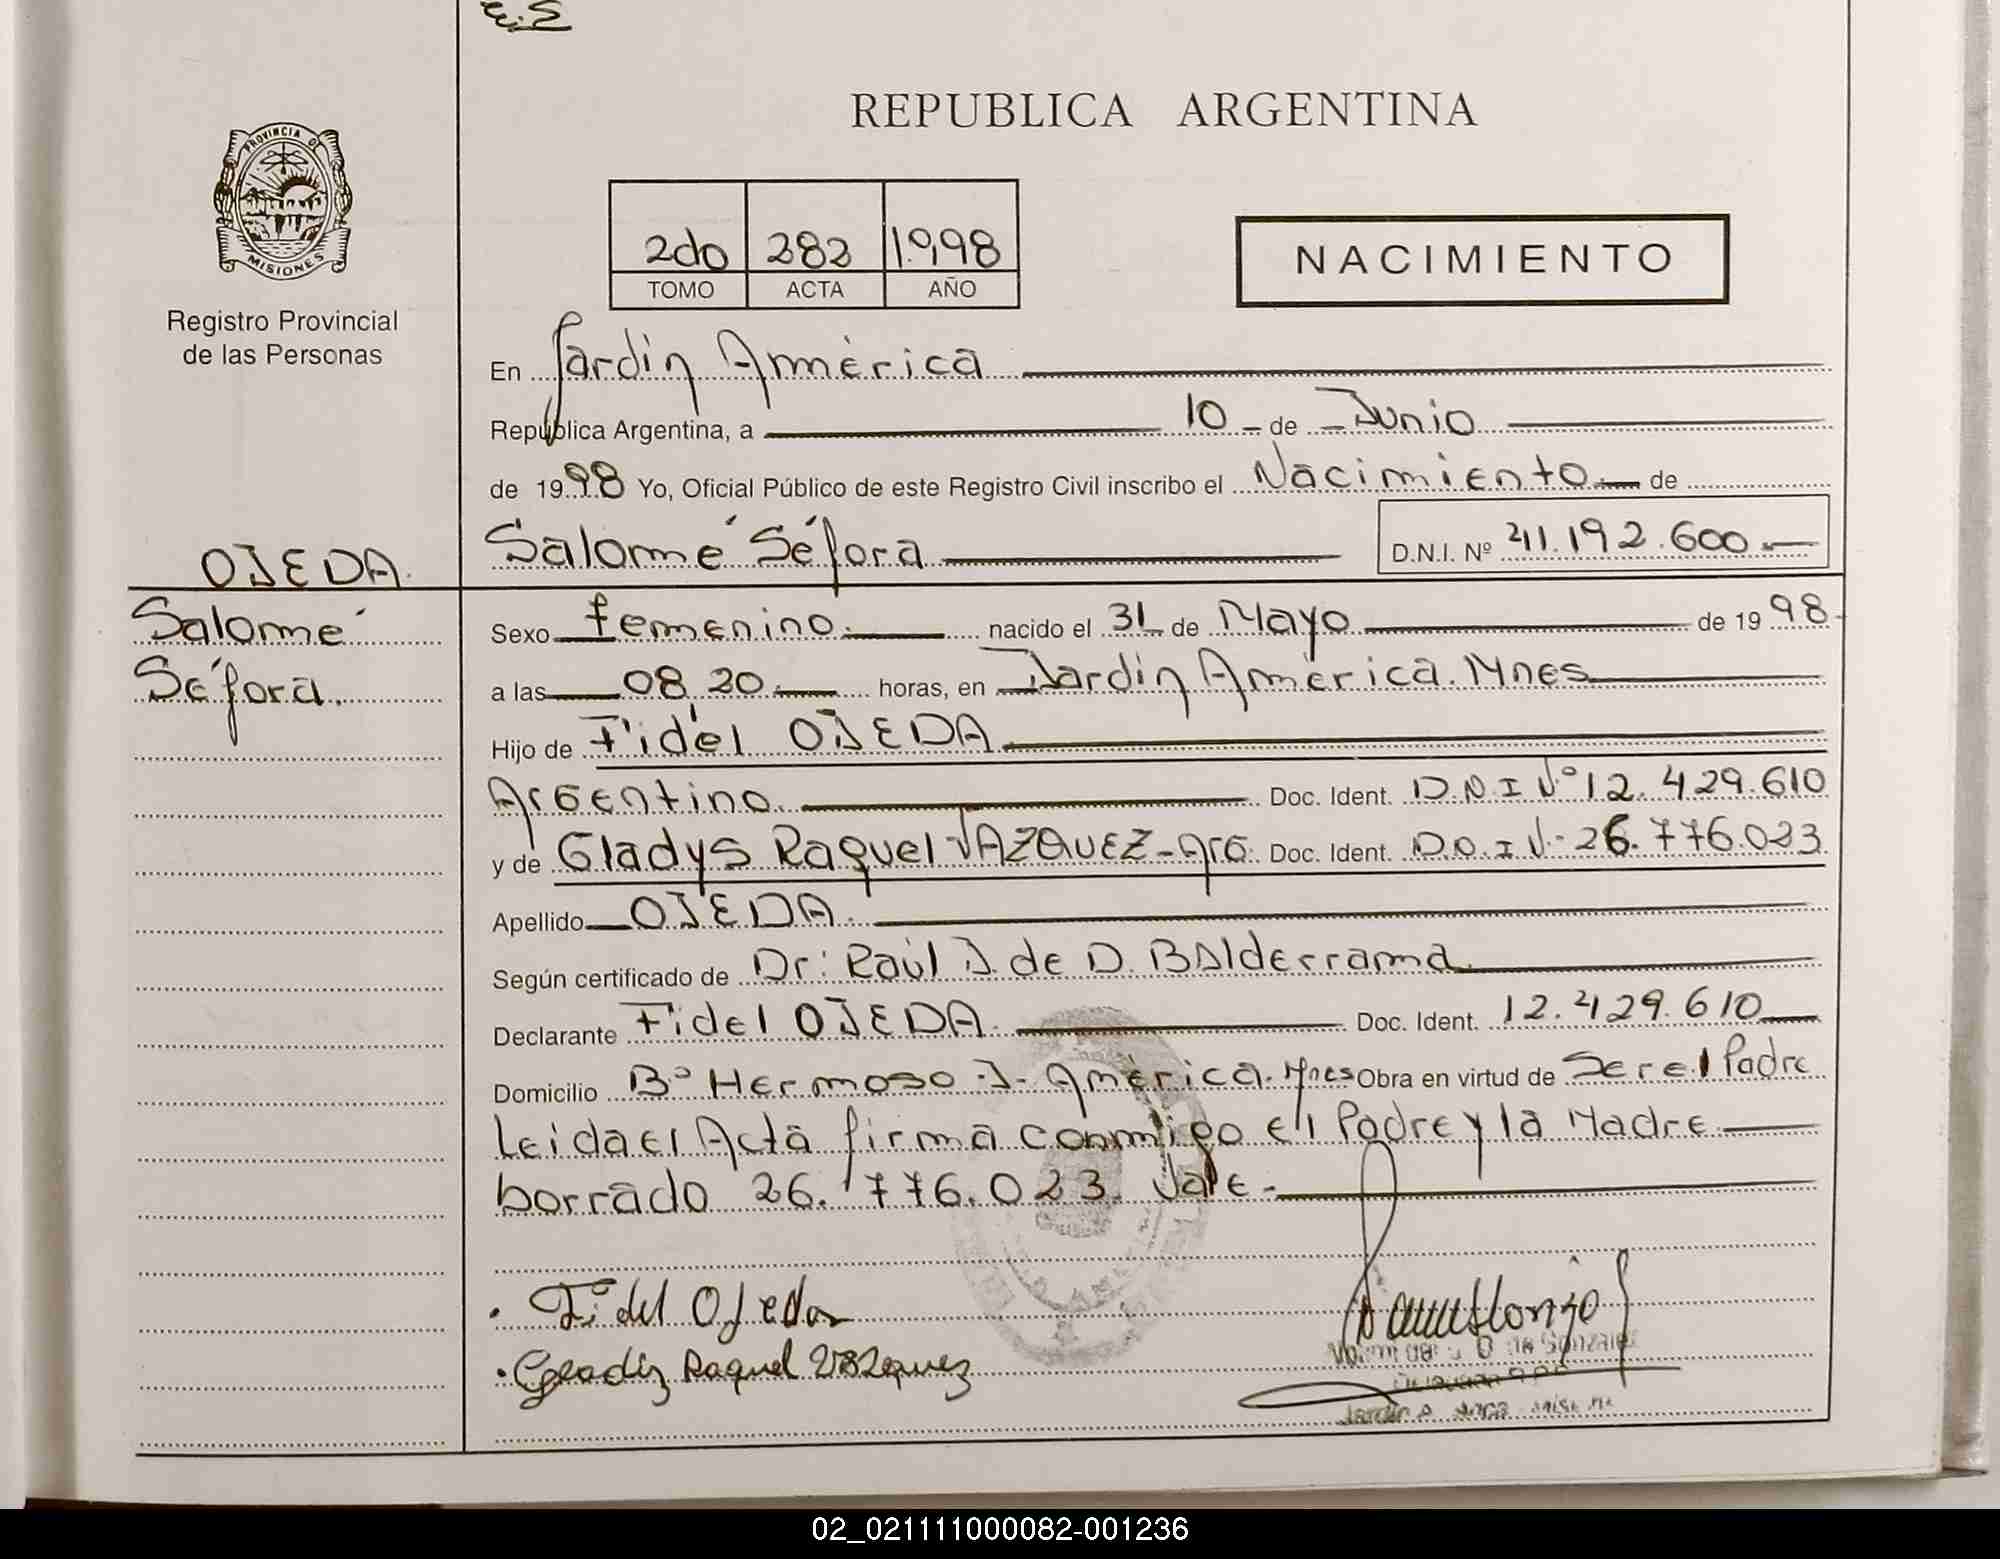 REPUBLICA ARGENTINA
PROVINCIA DE
MISIONES
Registro Provincial
de las Personas
2do 282 1998
TOMO ACTA AÑO
NACIMIENTO
En Jardín América
Republica Argentina, a 10 de Junio
de 1998 Yo, Oficial Público de este Registro Civil inscribo el Nacimiento de
Salomé Séfora D.N.I. Nº 41.192.600
OJEDA
Salomé
Séfora
Sexo femenino nacido el 31 de Mayo de 1998
a las 08,20 horas, en Jardín América. Mnes
Hijo de Fidel OJEDA
Argentino Doc. Ident. D.N.I Nº 12.429.610
y de Gladys Raquel VAZQUEZ - Arg. Doc. Ident. D.N.I N. 26.776.023
Apellido OJEDA.
Según certificado de Dr: Raúl J. de D. Balderrama
Declarante Fidel OJEDA. Doc. Ident. 12.429.610
Domicilio Bº Hermoso - J. América. Mnes Obra en virtud de Ser el Padre
Leida el Acta firma conmigo el Padre y la Madre
borrado 26.776.023 Vale.-
Fidel Ojeda
Gladiz Raquel Vazquez
02_021111000082-001236